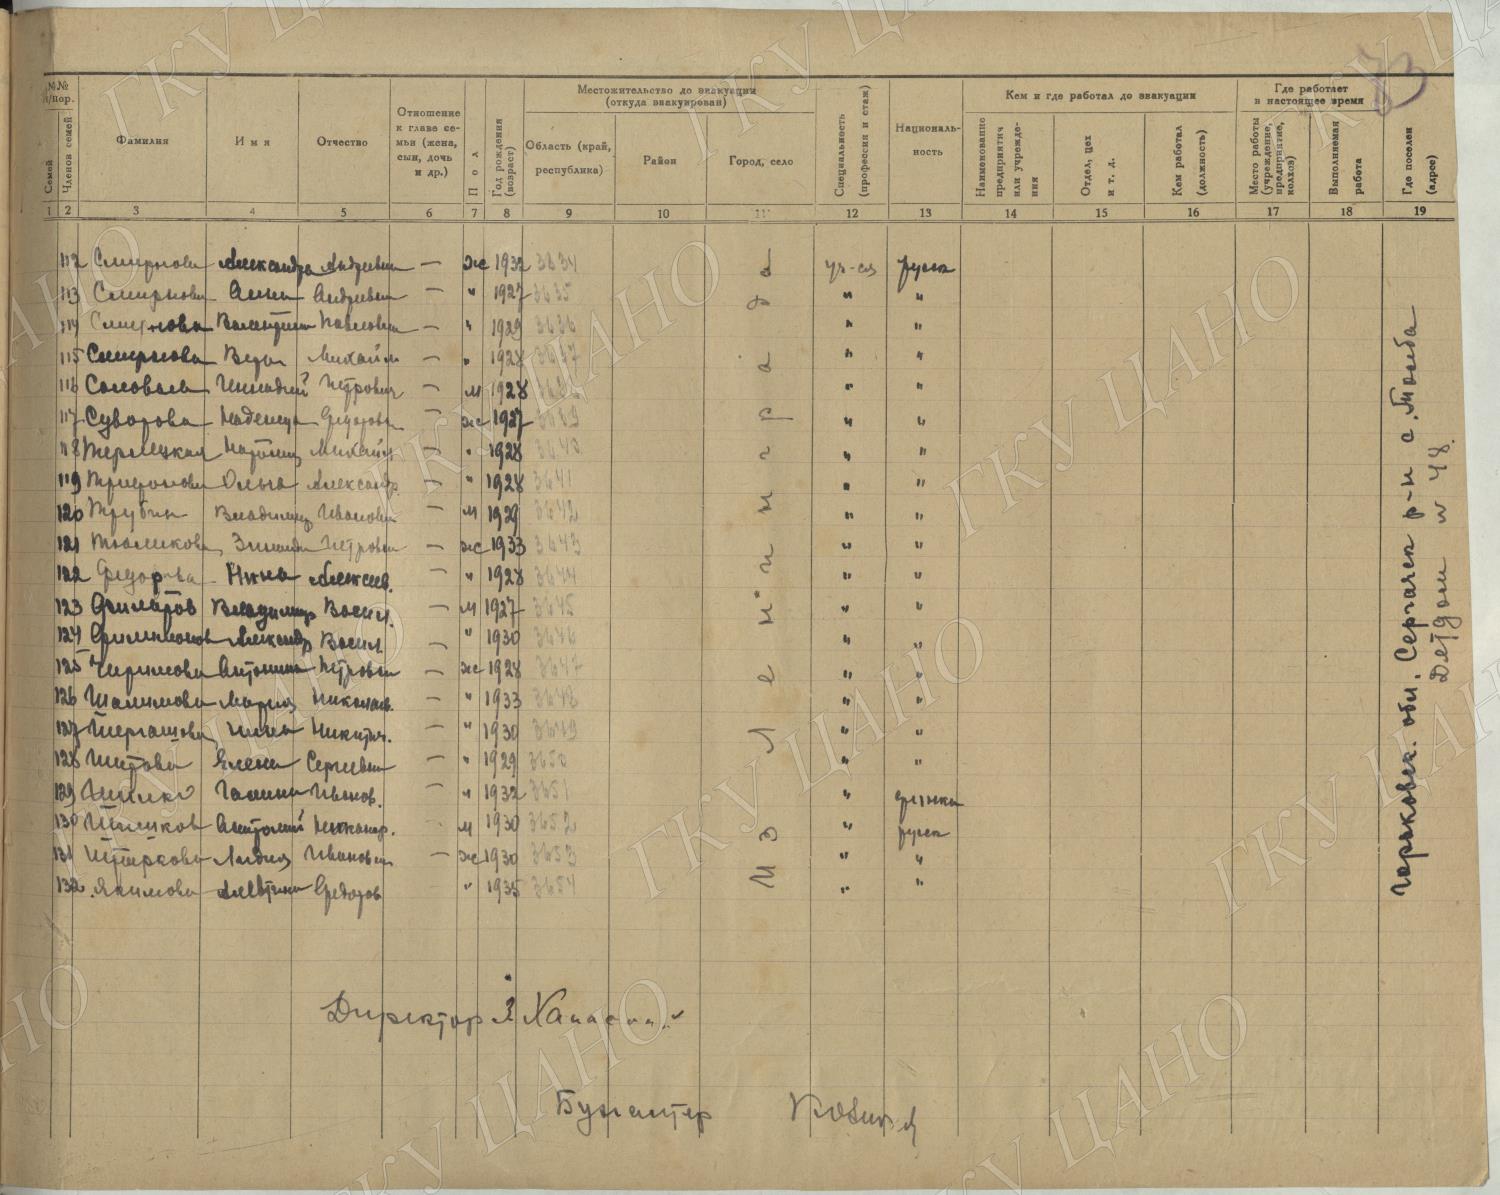 73
№№ п/пор.
Семей
Членов семей
Фамилия
Имя
Отчество
Отношение к главе семьи (жена, сын, дочь и др.)
Пол
Год рождения (возраст)
Местожительство до эвакуации (откуда эвакуирован)
Область (край, республика)
Район
Город, село
Специальность (профессия и стаж)
Национальность
Кем и где работал до эвакуации
Наименование предприятия или учреждения
Отдел, цех и т. д.
Кем работал (должность)
Где работает в настоящее время
Место работы (учреждение, предприятие, колхоз)
Выполняемая работа
Где поселен (адрес)
1 2 3 4 5 6 7 8 9 10 11 12 13 14 15 16 17 18 19
112 Смирнова Александра Андреевн — ж 1932 3634 уч-ся русск
113 Смирнова Анна Андреевн — " 1927 3635 " "
114 Смирнова Валентина Павловн — " 1929 3636 " "
115 Смирнова Вера Михайл — " 1928 3637 " "
116 Соловьев Геннадий Петрович — м 1928 3638 " "
117 Суворова Надежда Федоровн — ж 1927 3639 " "
118 Терлецкая Михайл — " 1928 3640 " "
119 Трифонова Ольга Александр. — " 1928 3641 " "
120 Трубин Владимир Иванович — м 1929 3642 " "
121 Зинаида Петровн — ж 1933 3643 " "
122 Федорова Нина Алексеев. — " 1928 3644 " "
123 Филатов Владимир Васил. — м 1927 3645 " "
124 Филимонов Александр Васил — " 1930 3646 " "
125 Чиримова Антонина Петровн — ж 1928 3647 " "
126 Шалимова Мария Николаев. — " 1933 3648 " "
127 Нина Никитич. — " 1930 3649 " "
128 Шитова Елена Сергеевн — " 1929 3650 " "
129 Галина Иванов. — " 1932 3651 " финка
130 Анатолий м 1930 3652 " русск
131 Лидия Ивановн — ж 1930 3653 " "
132 Якимова Алевтина Федоров " 1935 3654 " "
Из Ленинграда
Горьковск. обл. Сергачск р-н с. Толба
Детдом № 48.
Директор
Бухгалтер
ГКУ ЦАНО